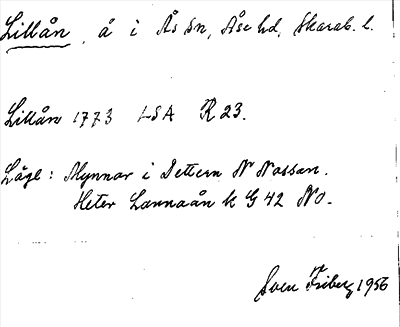 Lillån, å i Ås sn, Åse hd, Skarab. l.
Lillån 1773 LSA R 23.
Läge: Mynnar i Dettern N Nossan.
Heter Lannaån k G 42 NO.
Sven Friberg 1956